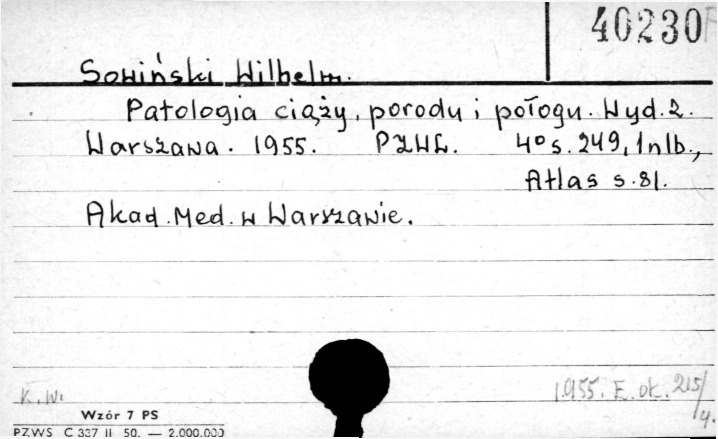 40230F
Sowiński Wilhelm.
Patologia ciąży, porodu i połogu. Wyd. 2.
Warszawa. 1955. PZWL. 4º s. 249, 1 nlb.,
Atlas s. 81.
Akad. Med. w Warszawie.
K. W.
1955. E. ok. 215/4.
Wzór 7 PS
PZWS C 337 II 50. — 2.000.000